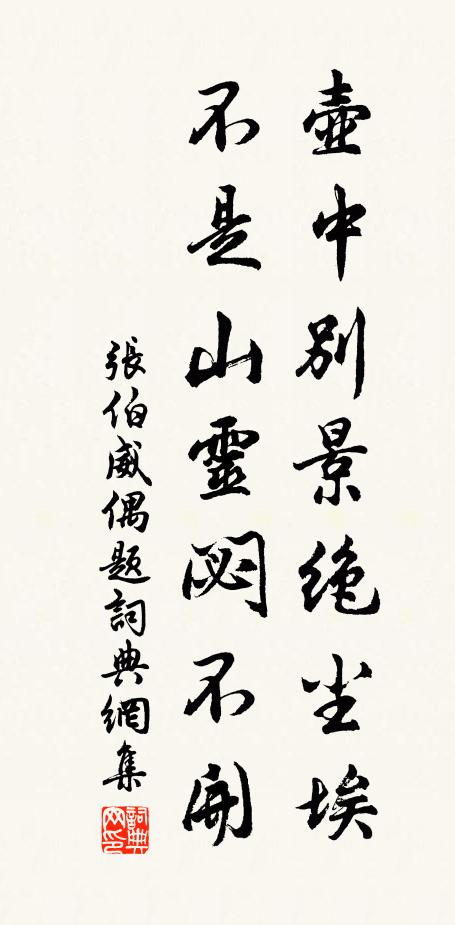 壺中別景絕尘埃
不是山靈閟不開
張伯威偶題詞典網集
詞典
网印